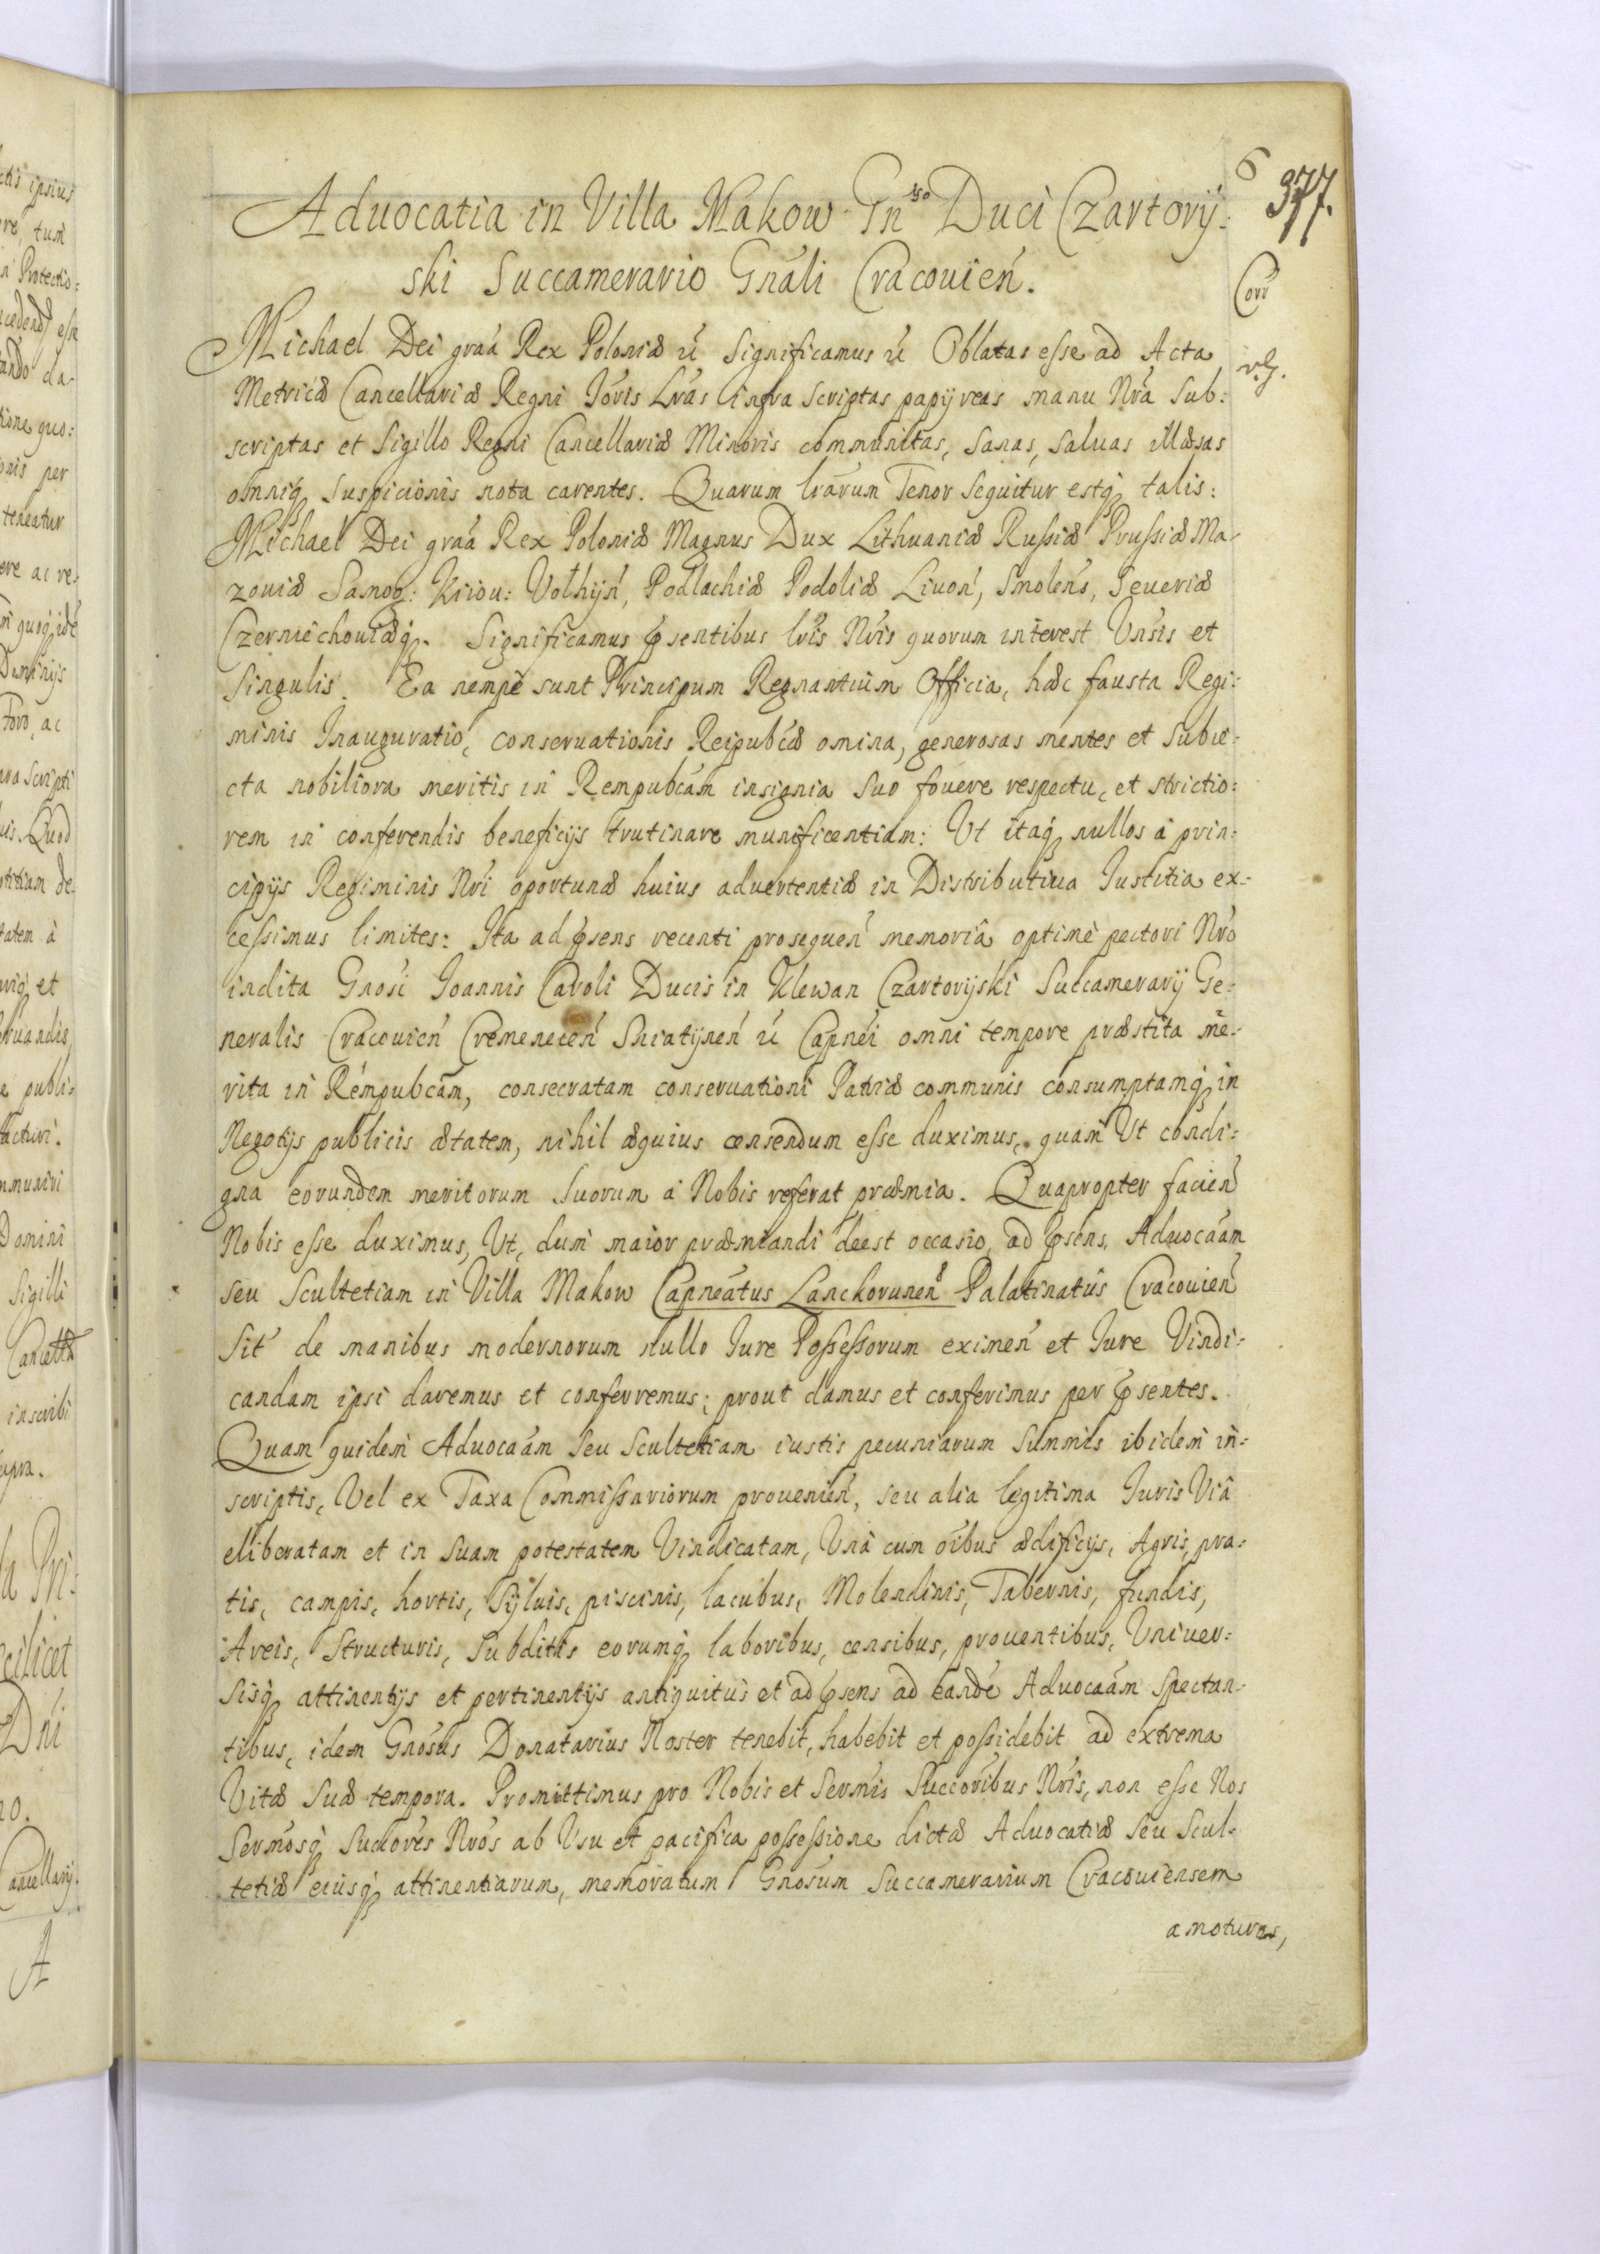 6
377.
Aduocatia in Villa Makow Gnso Duci Czartorÿ:
ski Succamerario Gnáli Cracouień.
Corr
Michael Dei graá Rex Poloniæ ú Significamus ú Oblatas esse ad Acta
Metricæ Cancellariæ Regni Ióris Lrás infra scriptas papÿreas manu Nrá Sub:
scriptas et Sigillo Regni Cancellariæ Minoris communitas, sanas, saluas illæsas
omniq; suspicionis nota carentes. Quarum lrárum Tenor sequitur estq; talis:
Michael Dei graá Rex Poloniæ Magnus Dux Lithuaniæ Russiæ Prussiæ Ma-
zouiæ Samog: Kiiou: Volhÿń, Podlachiæ Podoliæ Liuoń, Smoleńs, Seueriæ
Czerniechouiæq;. Significamus pśentibus lrís Nrís quorum interest Vnśis et
Singulis. Ea nempè sunt Principum Regnantium Officia, hæc fausta Regi:
minis Inauguratio, conseruationis Reipubcæ omina, generosas mentes et subie:
cta nobiliora meritis in Rempubcám insignia suo fouere respectu, et strictio:
rem in conferendis beneficijs trutinare munificentiam: Vt itaq; nullos à prin:
cipÿs Regiminis Nrí oportunæ huius aduertentiæ in Distributiua Iustitia ex:
cessimus limites: Ita ad psens recenti prosequeń memoriâ optimè pectori Nró
indita Gnosi Ioannis Caroli Ducis in Klewan Czartorÿski Succamerarÿ Ge:
neralis Cracouień Cremenecéń Sniatÿneń ú Capnéi omni tempore præstita me-
rita in Rémpubcám, consecratam conseruationi Patriæ communis consumptamq; in
Negotÿs publicis ætatem, nihil æquius censendum esse duximus, quam Vt condi:
gna eorundem meritorum suorum à Nobis referat præmia. Quapropter facień
Nobis esse duximus, Vt, dum maior præmiandi deest occasio, ad psens, Aduocaám
seu Scultetiam in Villa Makow Capneátus Lanckoruneń Palatinatûs Cracouień
Sit́ de manibus modernorum nullo Iure Possessorum eximeń et Iure Vindi:
candam ipsi daremus et conferremus; prout damus et conferimus per psentes.
Quam quidem Aduocaám seu Scultetiam iustis pecuniarum summis ibidem in:
scriptis, Vel ex Taxa Commissariorum prouenień, seu alia legitima Iuris Viâ
eliberatam et in suam potestatem Vindicatam, Vnà cum oíbus ædificÿs, Agris, pra:
tis, campis, hortis, Sÿluis, piscinis, lacubus, Molendinis, Tabernis, fundis,
Areis, structuris, subditis eorumq; laboribus, censibus, prouentibus, Vniuer:
sisq; attinentÿs et pertinentÿs antiquitùs et ad psens ad eandé Aduocaám spectan:
tibus, idem Gnosus Donatarius Noster tenebit, habebit et possidebit ad extrema
Vitæ suæ tempora. Promittimus pro Nobis et Sermís Succoríbus Nrís, non esse Nos
Sermósq; Succorés Nrós ab Vsu et pacifica possessione dictæ Aduocatiæ seu Scul-
tetiæ eiusq; attinentiarum, memoratum Gnosum Succamerarium Cracouiensem
amoturos,